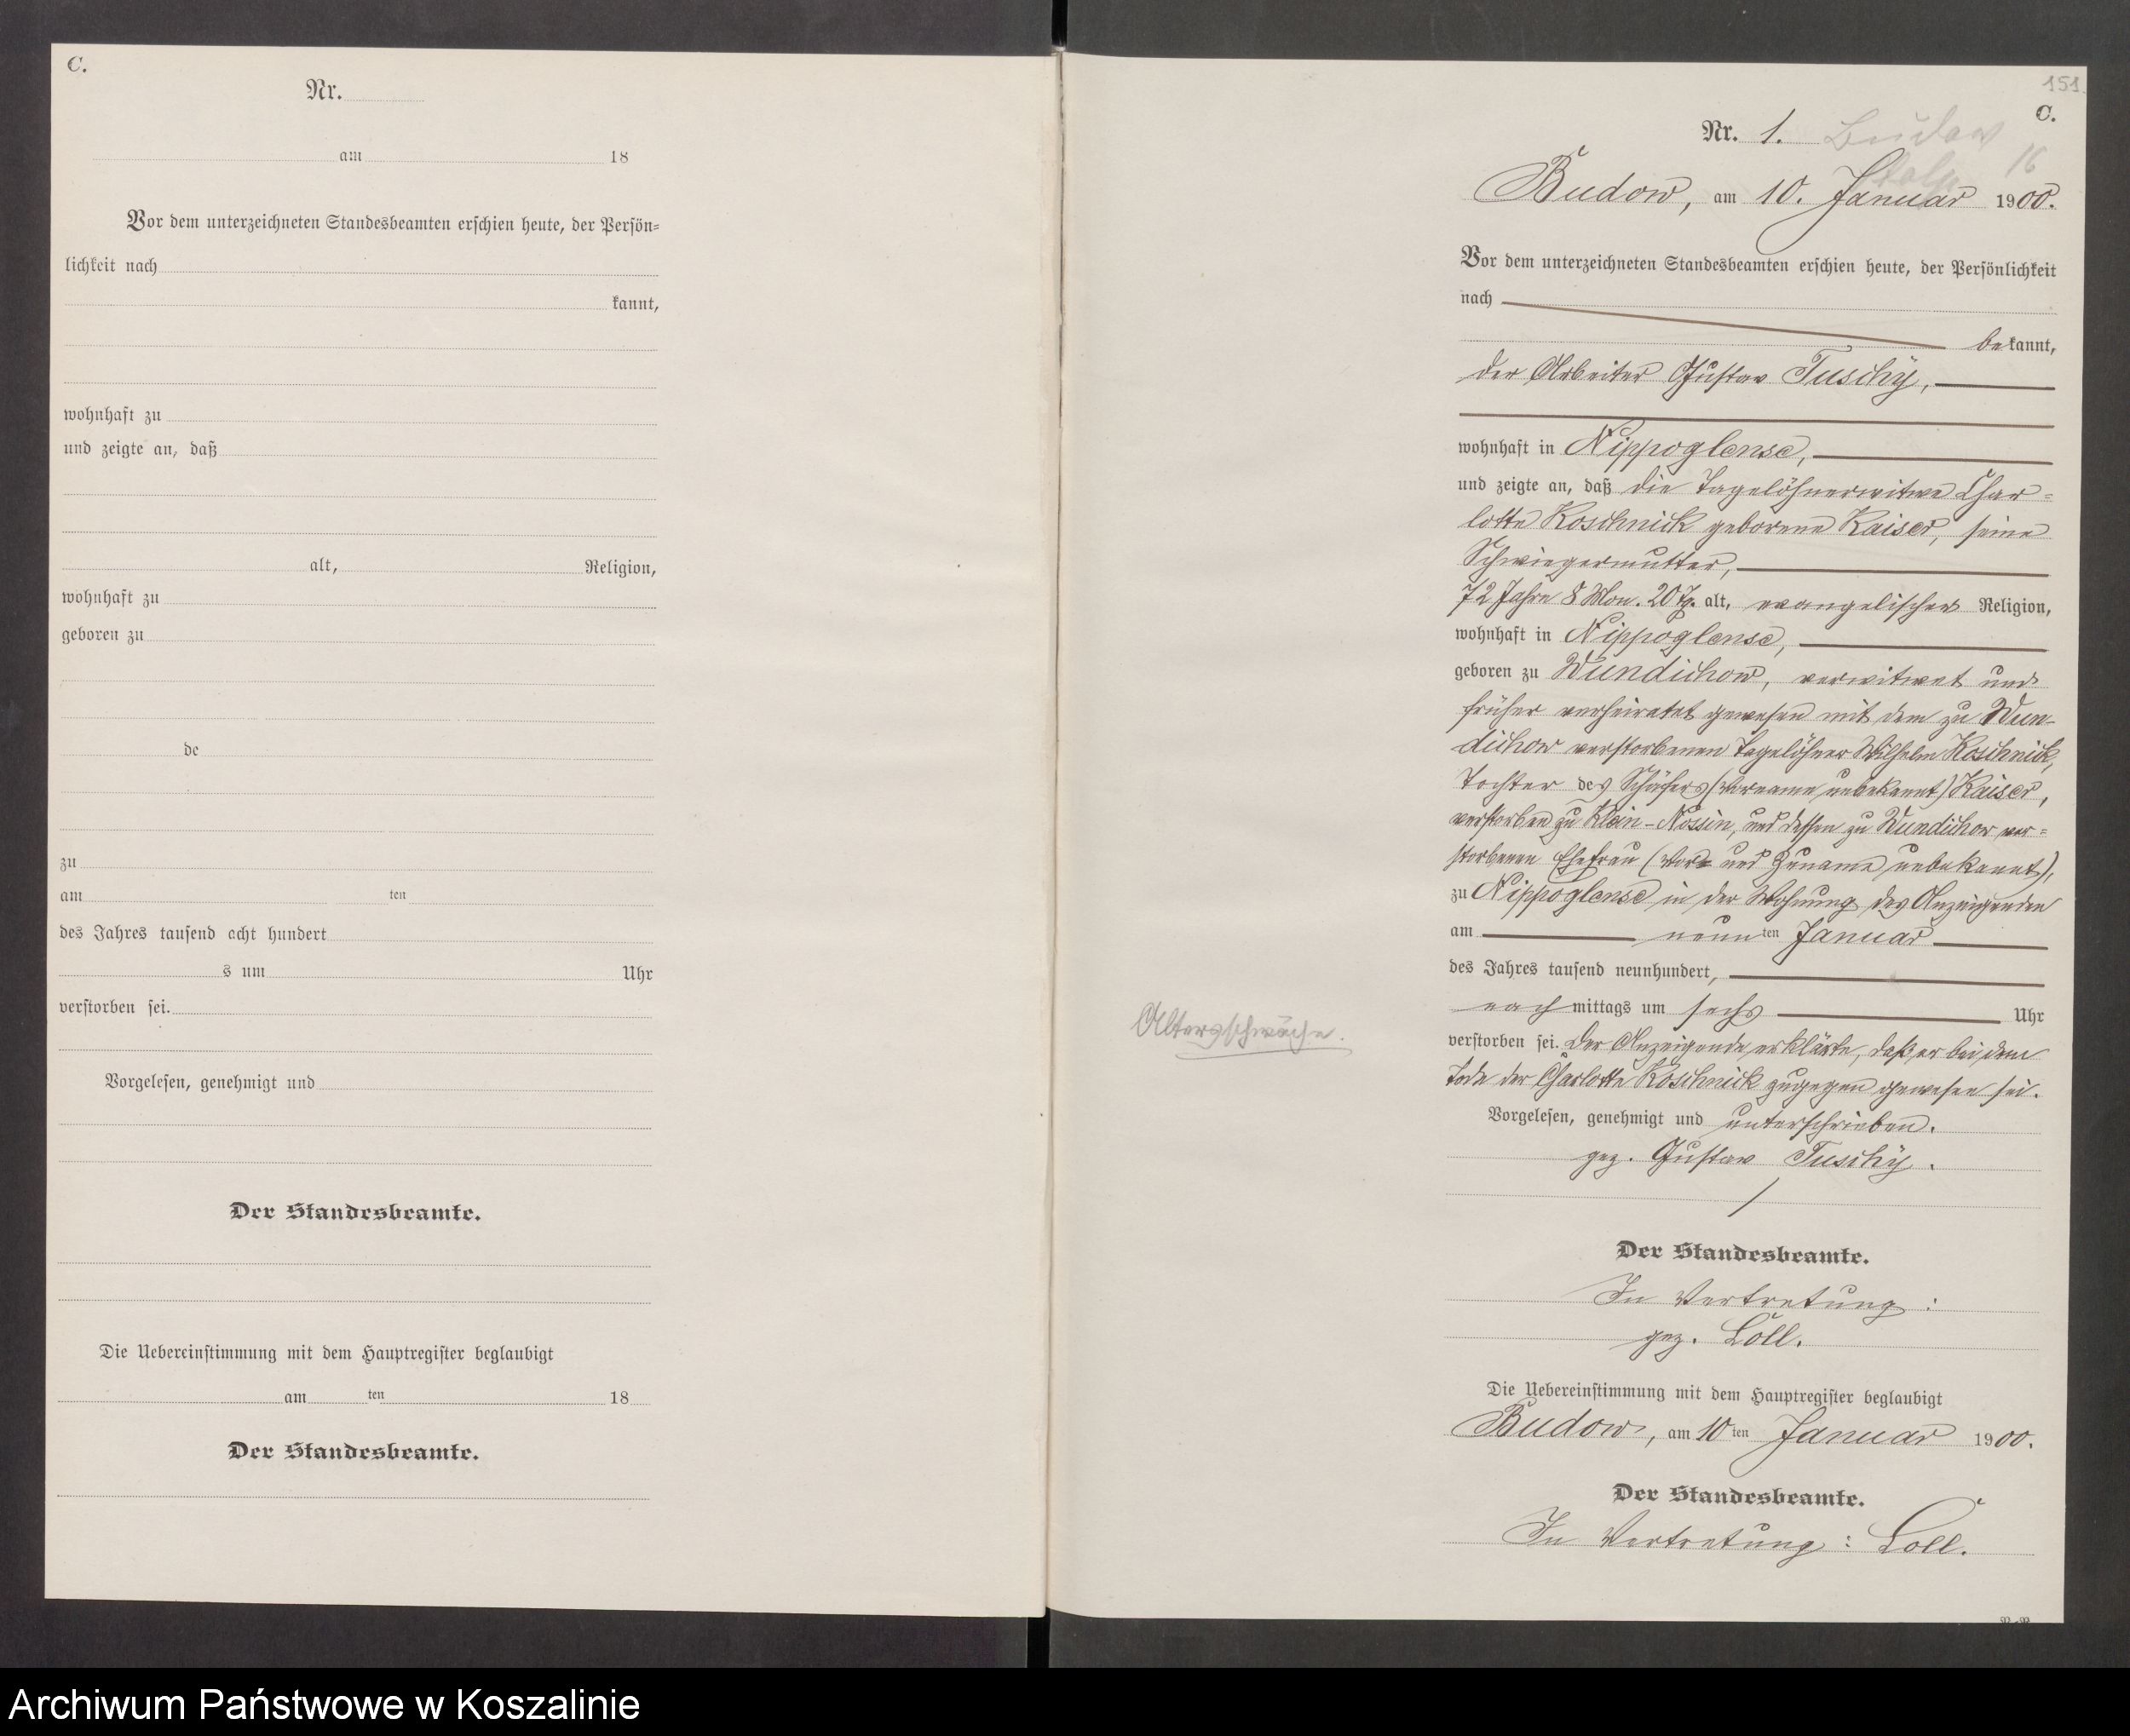 C.
Nr.
am 18
Vor dem unterzeichneten Standesbeamten erschien heute, der Persön=
lichkeit nach
kannt,
wohnhaft zu
und zeigte an, daß
alt, Religion,
wohnhaft zu
geboren zu
de
zu
am ten
des Jahres tausend acht hundert
s um Uhr
verstorben sei.
Vorgelesen, genehmigt und
Der Standesbeamte.
Die Uebereinstimmung mit dem Hauptregister beglaubigt
am ten 18
Der Standesbeamte.
151.
C.
Nr. 1. Budow
Stolp 16
Budow, am 10. Januar 1900.
Vor dem unterzeichneten Standesbeamten erschien heute, der Persönlichkeit
nach
bekannt,
der Arbeiter Gustav Tuschy,
wohnhaft in Nippoglense,
und zeigte an, daß die Tagelöhnerwitwe Char=
lotte Koschnick geborene Kaiser, seine
Schwiegermutter,
72 Jahre 8 Mon. 20 Tg. alt, evangelischer Religion,
wohnhaft in Nippoglense,
geboren zu Wundichow, verwitwet und
früher verheiratet gewesen mit dem zu Wun-
dichow verstorbenen Tagelöhner Wilhelm Koschnick,
Tochter des Schäfers (Vorname unbekannt) Kaiser,
verstorben zu Klein-Nossin, und dessen zu Wundichow ver=
storbenen Ehefrau (Vor= und Zuname unbekannt),
zu Nippoglense in der Wohnung des Anzeigenden
am neunten Januar
des Jahres tausend neunhundert,
nachmittags um sechs Uhr
verstorben sei. Der Anzeigende erklärte, daß er bei dem
Tode der Charlotte Koschnick zugegen gewesen sei.
Altersschwäche.
Vorgelesen, genehmigt und unterschrieben.
gez. Gustav Tuschy.
Der Standesbeamte.
In Vertretung:
gez. Loll.
Die Uebereinstimmung mit dem Hauptregister beglaubigt
Budow, am 10ten Januar 1900.
Der Standesbeamte.
In Vertretung: Loll.
Archiwum Państwowe w Koszalinie